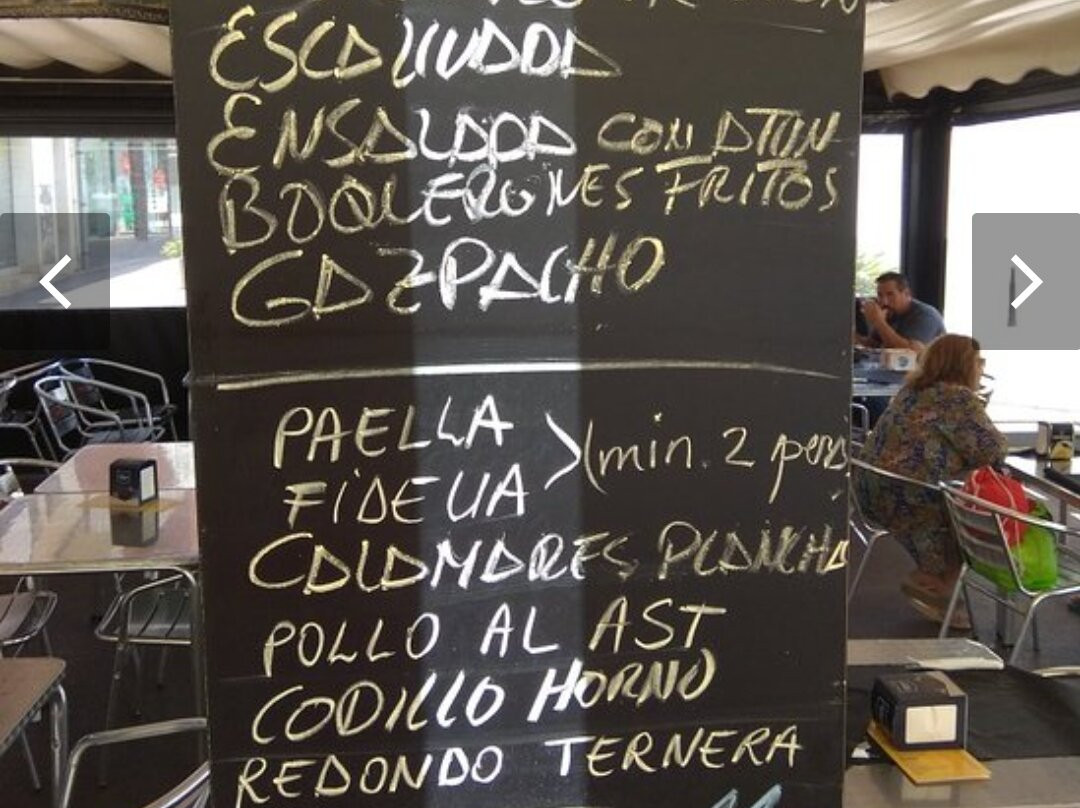 ESCALIVADA
ENSALADA CON ATUN
BOQUERONES FRITOS
GAZPACHO
PAELLA
FIDEUA
(min. 2 pers
CALAMARES PLANCHA
POLLO AL AST
CODILLO HORNO
REDONDO TERNERA